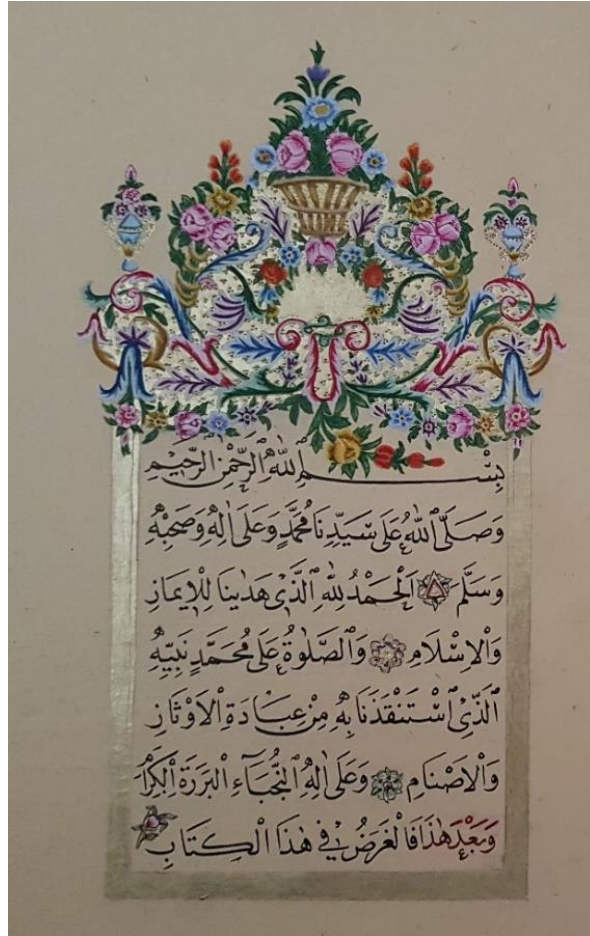 بِسْمِ اللّٰهِ الرَّحْمٰنِ الرَّحِيْمِ
وَصَلَّى اللّٰهُ عَلٰى سَيِّدِنَا مُحَمَّدٍ وَعَلٰى اٰلِهٖ وَصَحْبِهٖ
وَسَلَّمَ اَلْحَمْدُ لِلّٰهِ الَّذٰى هَدٰينَا لِلْاِيمَانِ
وَالْاِسْلَامِ وَالصَّلٰوةُ عَلٰى مُحَمَّدٍ نَبِيِّهِ
الَّذِى اسْتَنْقَذَنَا بِهٖ مِنْ عِبَادَةِ الْاَوْثَانِ
وَالْاَصْنَامِ وَعَلٰى اٰلِهِ النُّجَبَاءِ الْبَرَرَةِ الْكِرَامِ
وَبَعْدَ هٰذَا فَالْغَرَضُ فِى هٰذَا الْكِتَابِ